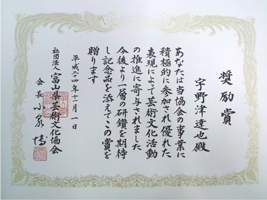 奨励賞
宇野津達也殿
あなたは当協会の事業に
積極的に参加され優れた
表現によって芸術文化活動
の推進に寄与されました
今後より一層の研鑽を期待
し記念品を添えてこの賞を
贈ります
平成二十四年十二月一日
社団法人 富山県芸術文化協会
会長 小泉博